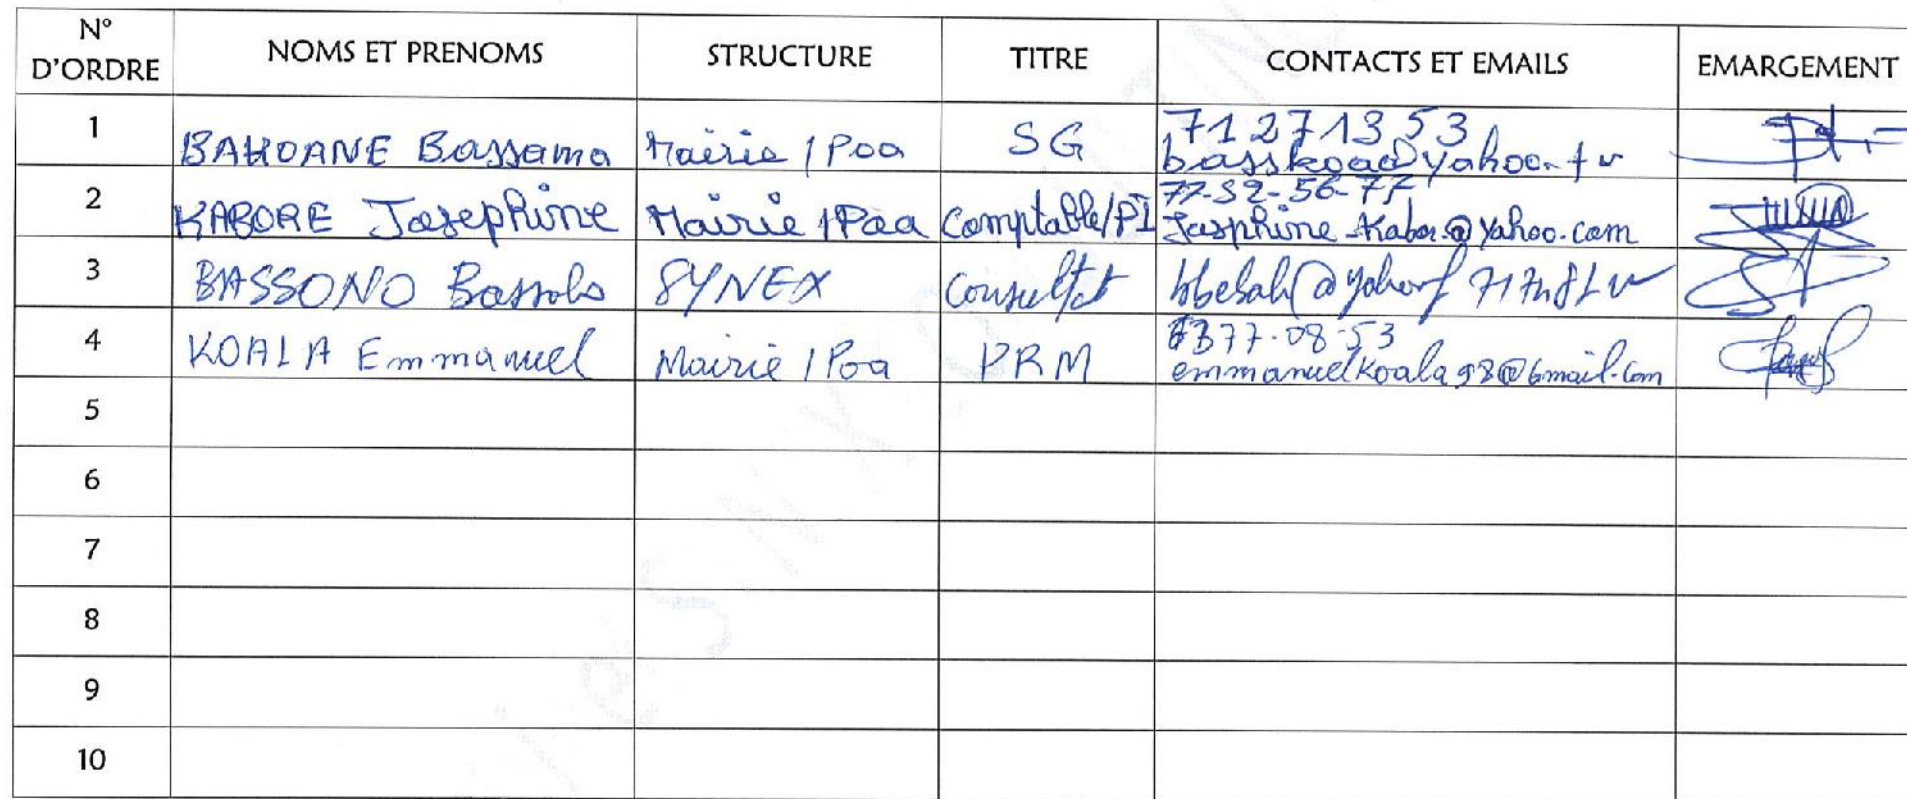 N° D'ORDRE NOMS ET PRENOMS STRUCTURE TITRE CONTACTS ET EMAILS EMARGEMENT
1 BAHOANE Bassama Mairie / Poa SG 71 27 13 53
basskoa@yahoo.fr
2 KABORE Josephine Mairie / Poa Comptable/PI
Josphine_Kabor@yahoo.com
3 BASSONO SYNEX
4 KOALA Emmanuel Mairie / Poa PRM 7377-08-53
emmanuelkoala98@Gmail.com
5
6
7
8
9
10